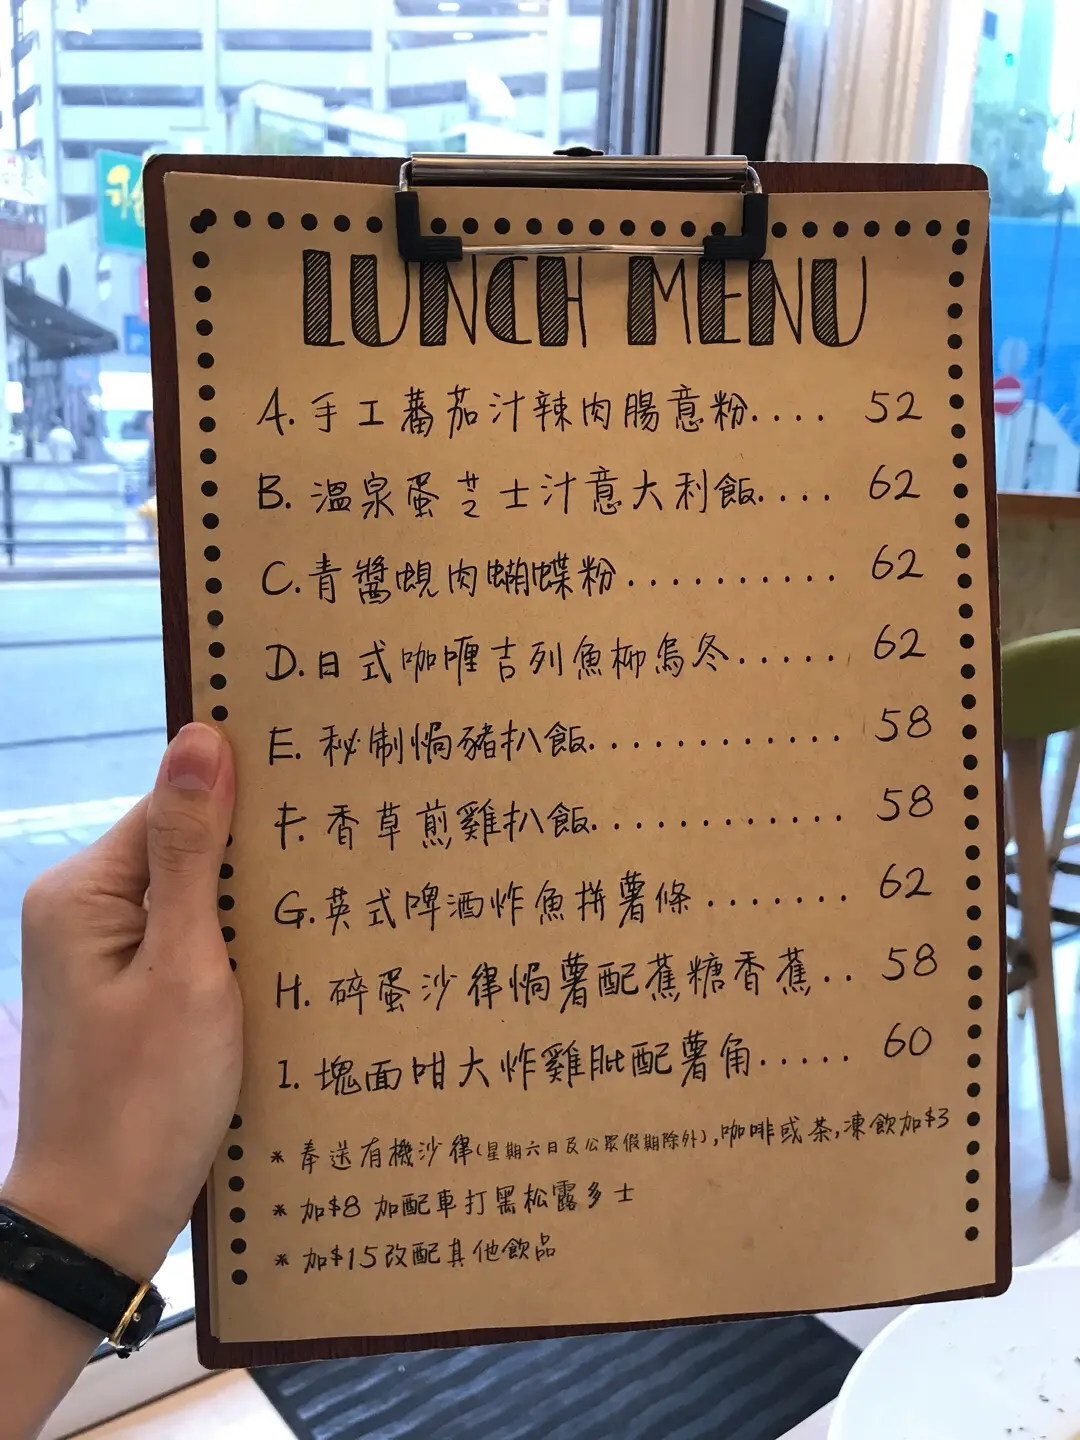 LUNCH MENU
A. 手工蕃茄汁辣肉腸意粉.... 52
B. 溫泉蛋芝士汁意大利飯.... 62
C. 青醬蜆肉蝴蝶粉.......... 62
D. 日式咖喱吉列魚柳烏冬..... 62
E. 秘制焗豬扒飯............ 58
F. 香草煎雞扒飯............ 58
G. 英式啤酒炸魚拼薯條....... 62
H. 碎蛋沙律焗薯配蕉糖香蕉.. 58
I. 塊面咁大炸雞肶配薯角..... 60
* 奉送有機沙律(星期六日及公眾假期除外),咖啡或茶,凍飲加$3
* 加$8 加配車打黑松露多士
* 加$15改配其他飲品